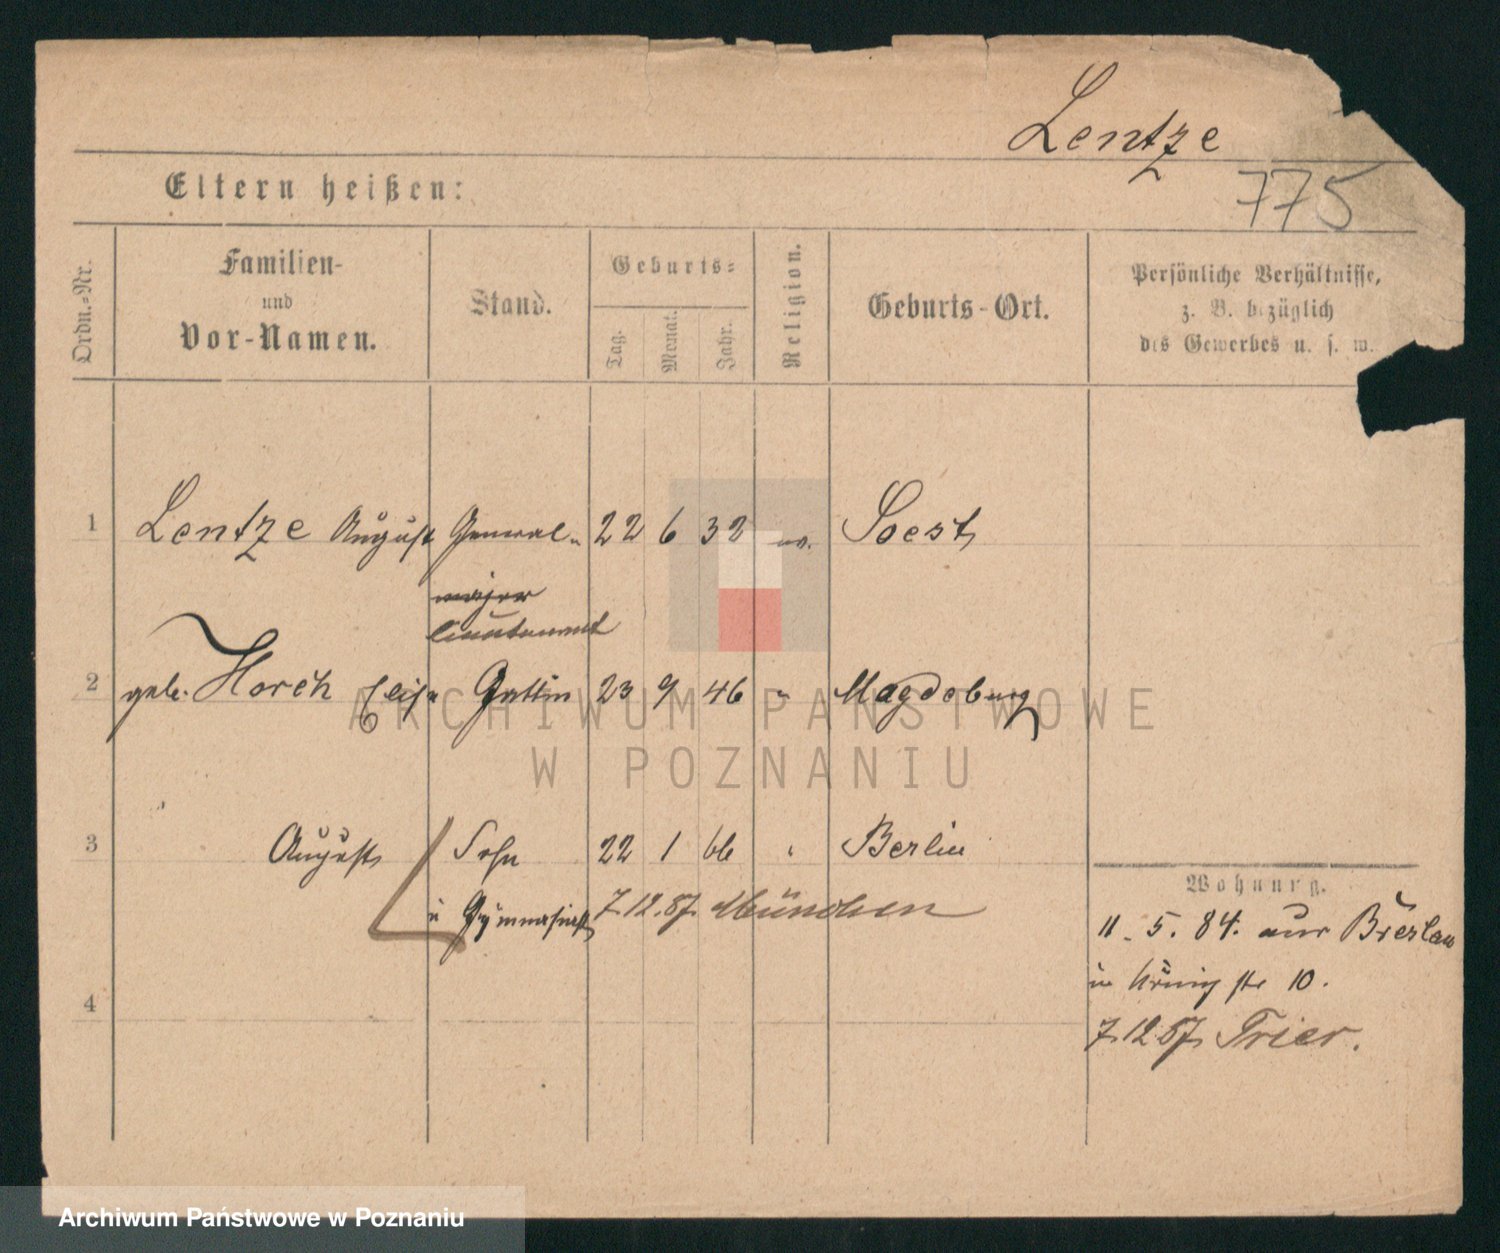 Lentze
775
Eltern heißen:
Ordn.-Nr.
Familien-
und
Vor-Namen.
Stand.
Geburts-
Tag.
Monat.
Jahr.
Religion.
Geburts-Ort.
Persönliche Verhältnisse,
z. B. bezüglich
des Gewerbes u. s. w.
1 Lentze August General- 22 6 32 ev. Soest
major
lieutenant
2 geb. Horch Elise Gattin 23 9 46 " Magdeburg
ARCHIWUM PAŃSTWOWE
W POZNANIU
3 August Sohn 22 1 66 " Berlin
u Gymnasiast 7.12.87. München
Wohnung.
11. 5. 84. aus Breslau
in Königstr 10.
4
7.12.87. Trier.
Archiwum Państwowe w Poznaniu